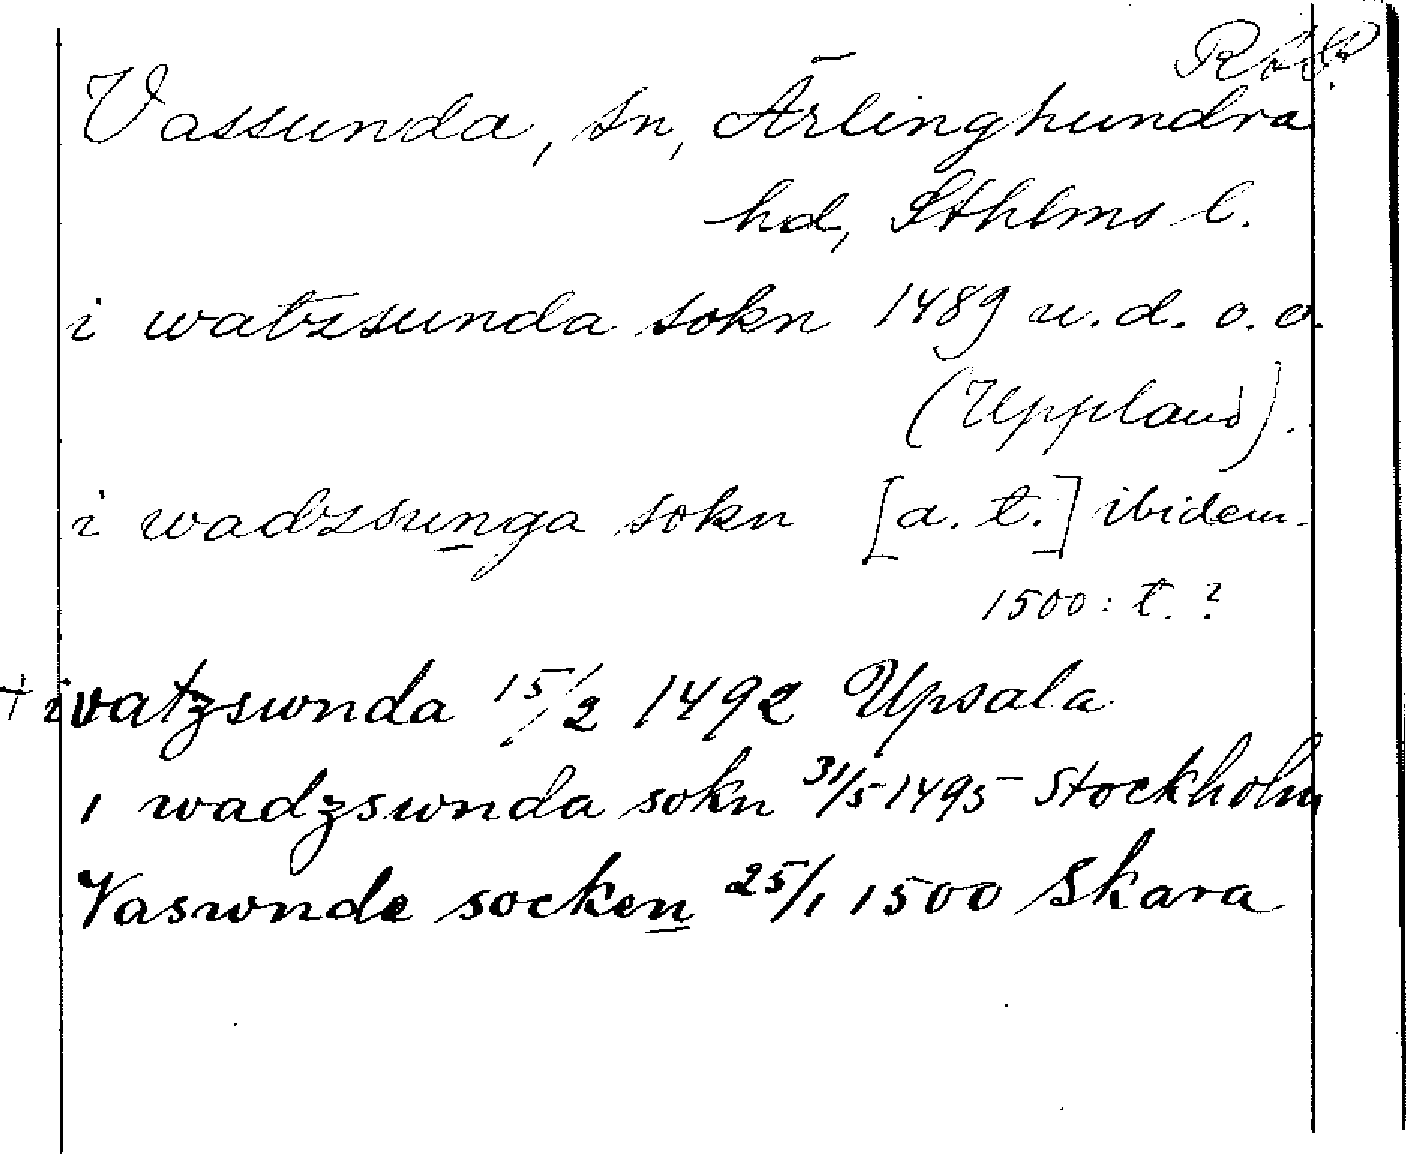 RAP.
Vassunda, sn, Ärlinghundra
hd, Sthlms l.
i watzsunda sokn 1489 u. d. o. o.
(Uppland).
i wadzsunga sokn [a. t.] ibidem.
1500: t.?
+ i vatzswnda 15/2 1492 Upsala
i wadzswnda sokn 31/5 1495 Stockholm
Vaswnde socken 25/1 1500 Skara